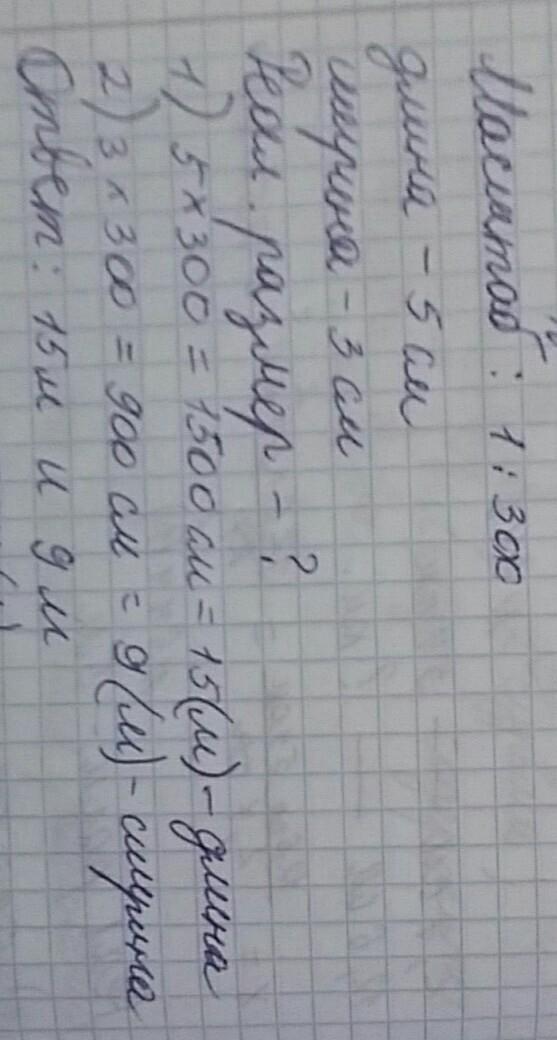 Масштаб: 1:300
длина - 5 см
ширина - 3 см
Реал. размер - ?
1) 5 х 300 = 1500 см = 15 (м) - длина
2) 3 х 300 = 900 см = 9 (м) - ширина
Ответ: 15 м и 9 м